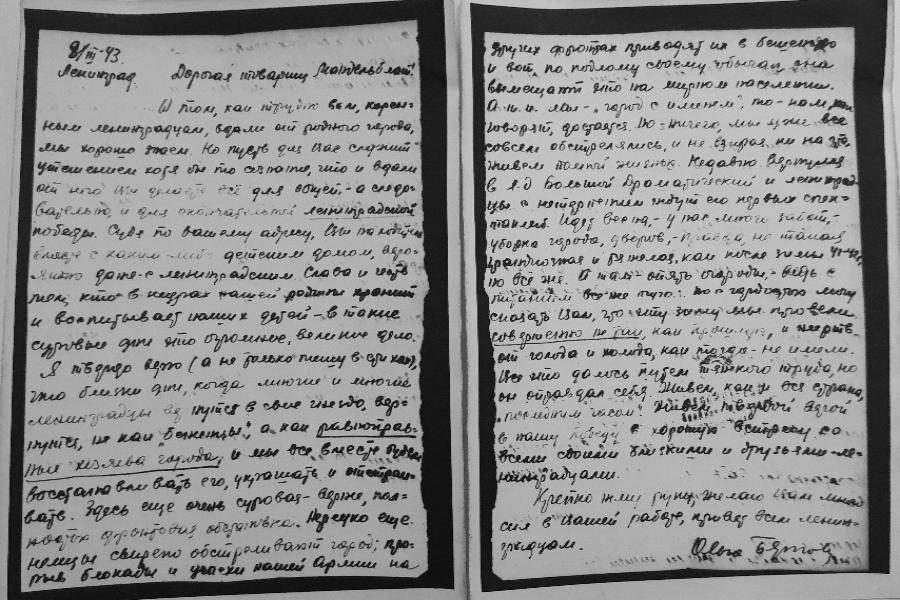 8/III-43.
Ленинград. Дорогая товарищ Мандельблат!
О том, как трудно вам, корен-
ным ленинградцам, вдали от родного города,
мы хорошо знаем. Но пусть для Вас служит
утешением хотя бы то сознание, что и вдали
от него Вы делаете всё для общей, - а следо-
вательно, и для окончательной ленинградской
победы. Судя по вашему адресу, Вы находитесь
вместе с каким-либо детским домом, веро-
ятно даже с ленинградским. Слава и честь
тем, кто в недрах нашей родины хранит
и воспитывает наших детей - в такие
суровые дни это огромное, великое дело.
Я твердо верю (а не только пишу в стихах),
что близки дни, когда многие и многие
ленинградцы вернутся в свое гнездо, вер-
нутся, не как "беженцы", а как равноправ-
ные хозяева города, и мы все вместе будем
восстанавливать его, украшать и отстраи-
вать. Здесь еще очень суровая - вернее, пол-
ностью фронтовая обстановка. Нередко еще
немцы свирепо обстреливают город; про-
рыв блокады и успехи нашей Армии на
других фронтах приводят их в бешенство
и вот, по подлому своему обычаю, они
вымещают это на мирном населении.
А т.к. мы - "город с именем", то - нам, как
говорят, достается. Но ничего, мы уже все
совсем обстрелялись, и не взирая ни на что
живем полной жизнью. Недавно вернулся
в Л-д Большой Драматический и ленинград-
цы с нетерпением ждут его первых спек-
таклей. Идет весна - у нас много забот, -
уборка города, дворов, - правда, не такая
грандиозная и тяжелая, как после зимы 41-42 г,
но всё же. А там - опять огороды, - ведь с
питанием все же туго. Но с гордостью могу
сказать Вам, что эту зиму мы провели
совершенно не так, как прошлую, и жертв
от голода и холода, как тогда - не имели.
Все это далось путем тяжкого труда, но
он оправдал себя. Живем, как и вся страна,
"последним часом". Живем твердой верой
в нашу победу и хорошую встречу со
всеми своими близкими и друзьями-ле-
нинградцами.
Крепко жму руку, желаю Вам много
сил в Вашей работе, привет всем ленин-
градцам.
Ольга Берггольц